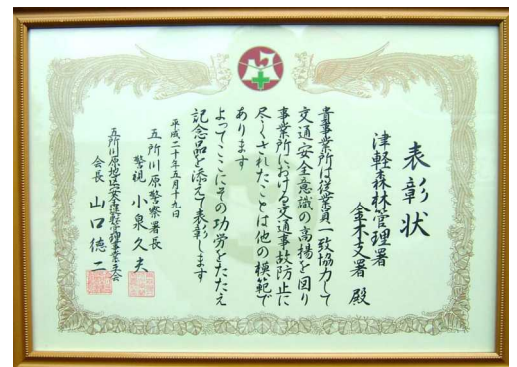 表彰状
津軽森林管理署
金木支署 殿
貴事業所は従業員一致協力して
交通安全意識の高揚を図り
事業所における交通事故防止に
尽くされたことは他の模範で
あります
よってここにその功労をたたえ
記念品を添えて表彰します
平成二十年五月十九日
五所川原警察署長
警視 小泉久夫
五所川原地区安全運転管理事業主会
会長 山口徳二